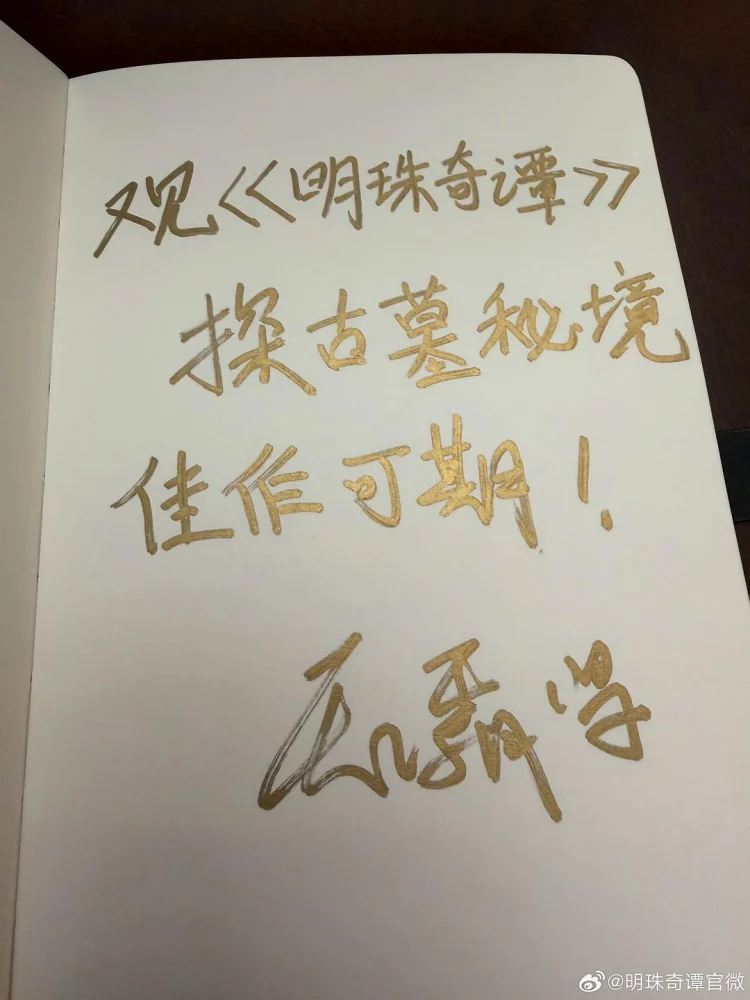 观《明珠奇谭》
探古墓秘境
佳作可期！
石霸学
@明珠奇谭官微